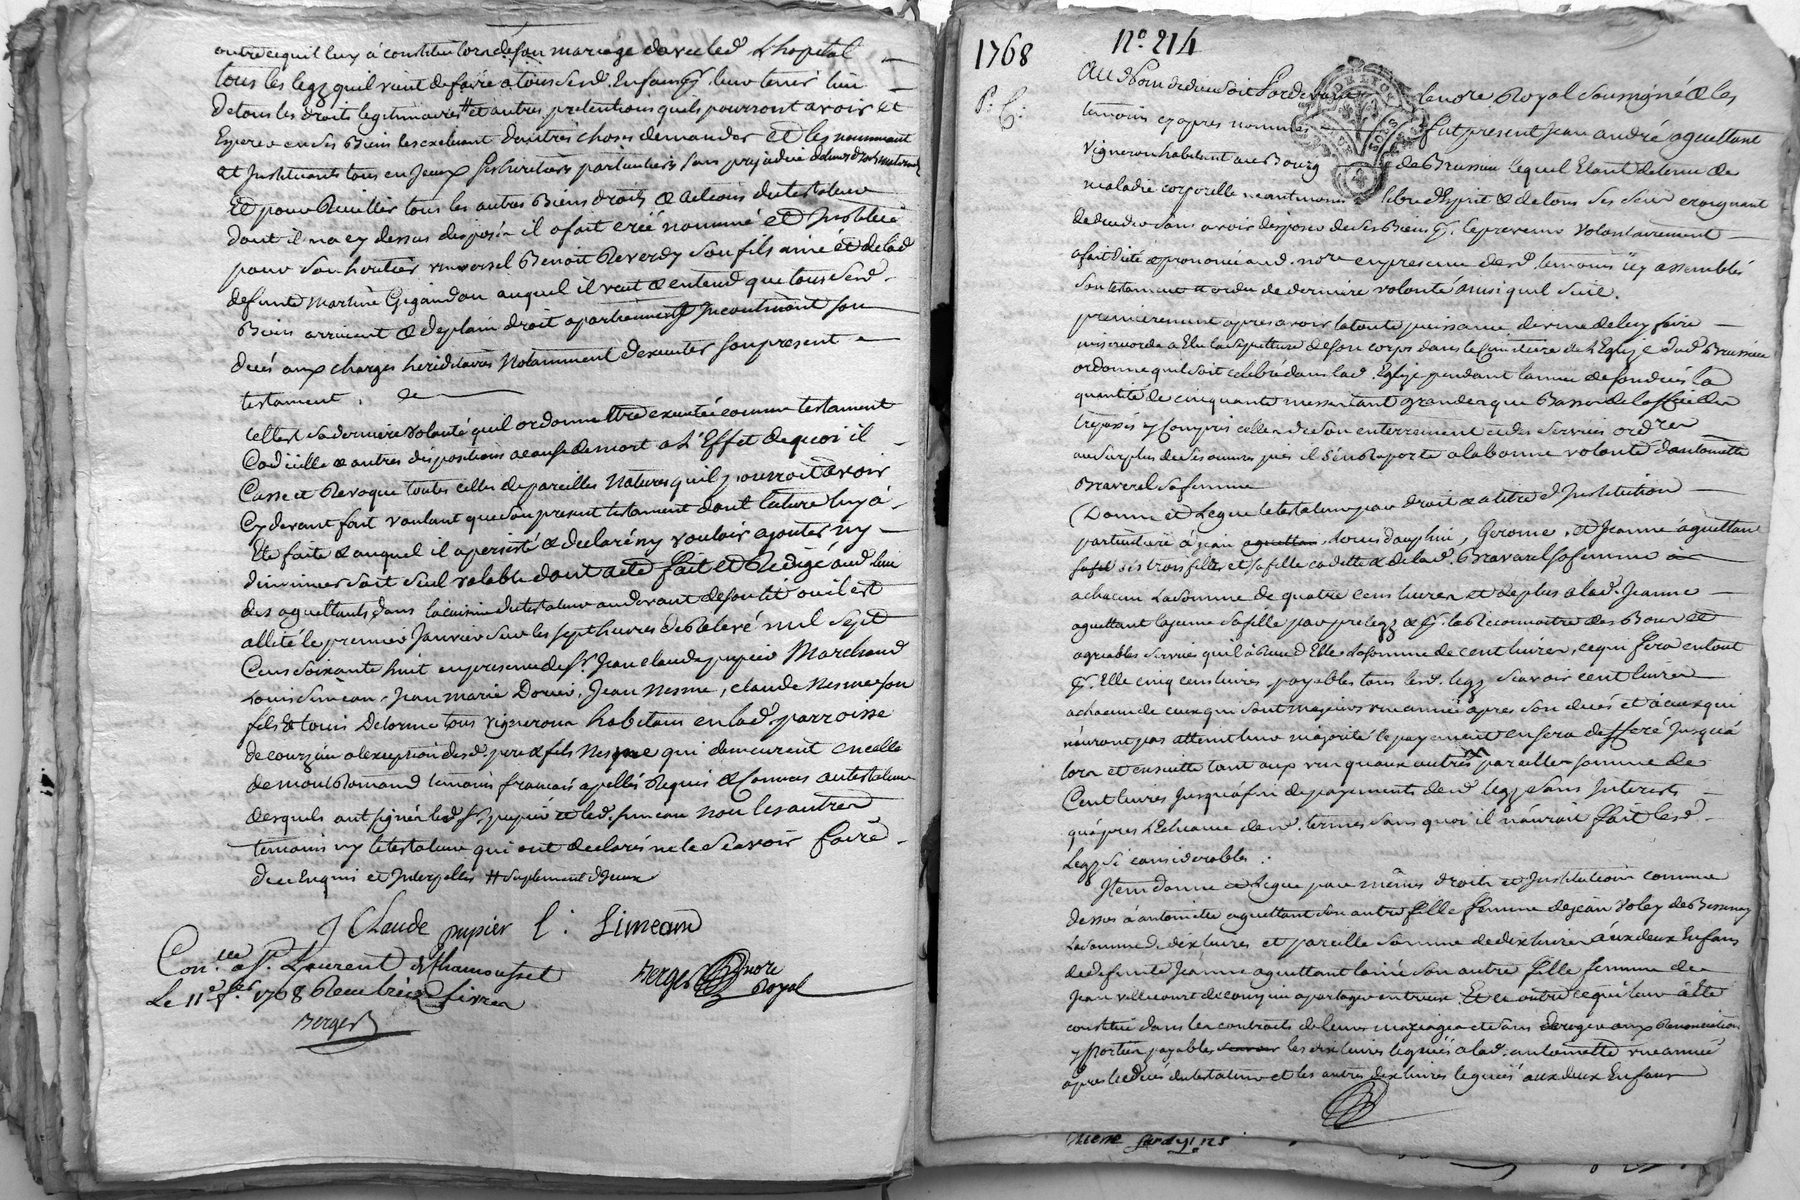 outre ce quil luy à constitue lors de son mariage avec led. Lhopital
tous les legz quil vient de faire a tous sesd. Enfans pr. leur tenir lieu
de tous les droits legitimaires # et autres pretentions quels pourront avoir et
Esperer en ses Biens les excluant dautres choses demander et les nommant
et Instituants tous en Jceux ses heritiers particuliers sans prejudice
Et pour Recuillir tous les autres Biens droits & actions du testateur
dont il na cy dessus disposéz il a fait créé nommé et Institué
pour son heritier universel Benoit Reverdy son fils ainé et de lad.
defunte Martine Gigandou auquel il veut & entend que tous sesd.
Biens arrivent & de plain droit apartiennent Jncontinant son
decés aux charges hereditaires Notamment dexecuter son present
testament.
Telle est sa derniere volonté quil ordonne être executée comme testament
Codicille & autres dispositions a cause de mort a L'Effet de quoi il
Casse et Revoque toutes celles de pareilles Natures quil pourroit avoir
Cy devant fait voulant que son present testament dont lature luy à
Eté faite & auquel il a persisté & declaré ny vouloir ajouter ny
diminuer soit seul valable dont acte fait et Redigé aud. lieu
des aguettants dans la cuisine du testateur au devant de son lit ou il est
allité le premier Janvier sur les sept heures de Relevé mil sept
Cens soixante huit en presence de Sr. Jean claude pupier Marchand
Louis Simean, Jean marie Dorier, Jean Nesme, claude Nesme son
fils & Louis Delorme tous vignerons habitans en lad. parroisse
de courzieu a lexeption desd. pere & fils Nesme qui demeurent en celle
de mont Romand temoins francais apellés Requis & connus au testateur
desquels ont signés led. Sr. pupier et led. simean non les autres
temoins ny le testateur qui ont declarés ne le sçavoir faire
de ce Enquis et Interpellés # suplement dJceux
J Claude pupier L: Simean
Con.lle a St. Laurent de Chamousset
Le 11e. 1768 Reçu livres
Berger
Berger nore
Royal
1768
No. 214
P. C.
Au Nom de dieu soit Pardevant le nore Royal soussigné & les
temoins cy apres nommés fut present Jean andré aguettant
vigneron habitant au Bourg de Brussieu lequel Etant detenu de
maladie corporelle neantmoins libre d'Esprit & de tous ses sens craignant
de deceder sans avoir disposé de ses Biens pr. le prevenir volontairement
a fait dicté & prononcé aud. nore en presence desd. temoins icy assemblés
son testament et ordre de derniere volonté ainsi quil suit.
premierement apres avoir la toute puissance divine de luy faire
misericorde a Elu la sepulture de son corps dans le Cimetiere de l'Eglise dud. Brussieu
ordonne quil soit celebré dans lad. Eglise pendant l'année de son decés la
quantité de cinquante messes tant grandes que Basses de loffice des
trepassés y Compris celles de son enterrement et des services ordres
au surplus de ses œuvres pies il sen Raporte a la bonne volonté dantoinette
Bravarel sa femme
Donne et Legue le testateur par droit & a titre d'Institution
particuliere à jean aguettant, Louis dauphin, Gerome, et Jeanne aguettant
ses trois fils et sa fille cadette & de lad. Bravarel sa femme à
a chacun La somme de quatre cens livres et de plus a lad. Jeanne
aguettant la jeune sa fille par prelegz & pr. la Reconnoitre des Bons et
agreables services quil à Reçu d'Elle La somme de cent livres, ce qui fera en tout
pr. Elle cinq cens livres payables tous lesd. legz sçavoir cent livres
a chacun de ceux qui sont majeurs une année apres son decés et à ceux qui
n'auront pas atteint leur majorité le payement en sera differé Jusquà
lors et ensuitte tant aux uns quaux autres pareille somme de
Cent livres Jusquà fin de payement desd. legz sans Interets
quapres L'Echeance desd. termes sans quoi il n'auroit fait lesd.
Legz si considerables.
Jtem donne & Legue par mêmes droits et Institution comme
dessus à antoinette aguettant son autre fille femme de jean Voley de Bessenay
La somme de dix livres et pareille somme de dix livres aux deux Enfans
de defunte Jeanne aguettant lainée son autre fille femme de
Jean villecourt de courzieu a partager entreux Et ce outre ce qui leur à Eté
constitué dans les contracts de leurs mariages et sans deroger aux Renonciations
y portées payables les dix livres leguées a lad. antoinette une année
apres le decés du testateur et les autres dix livres leguées aux deux Enfans